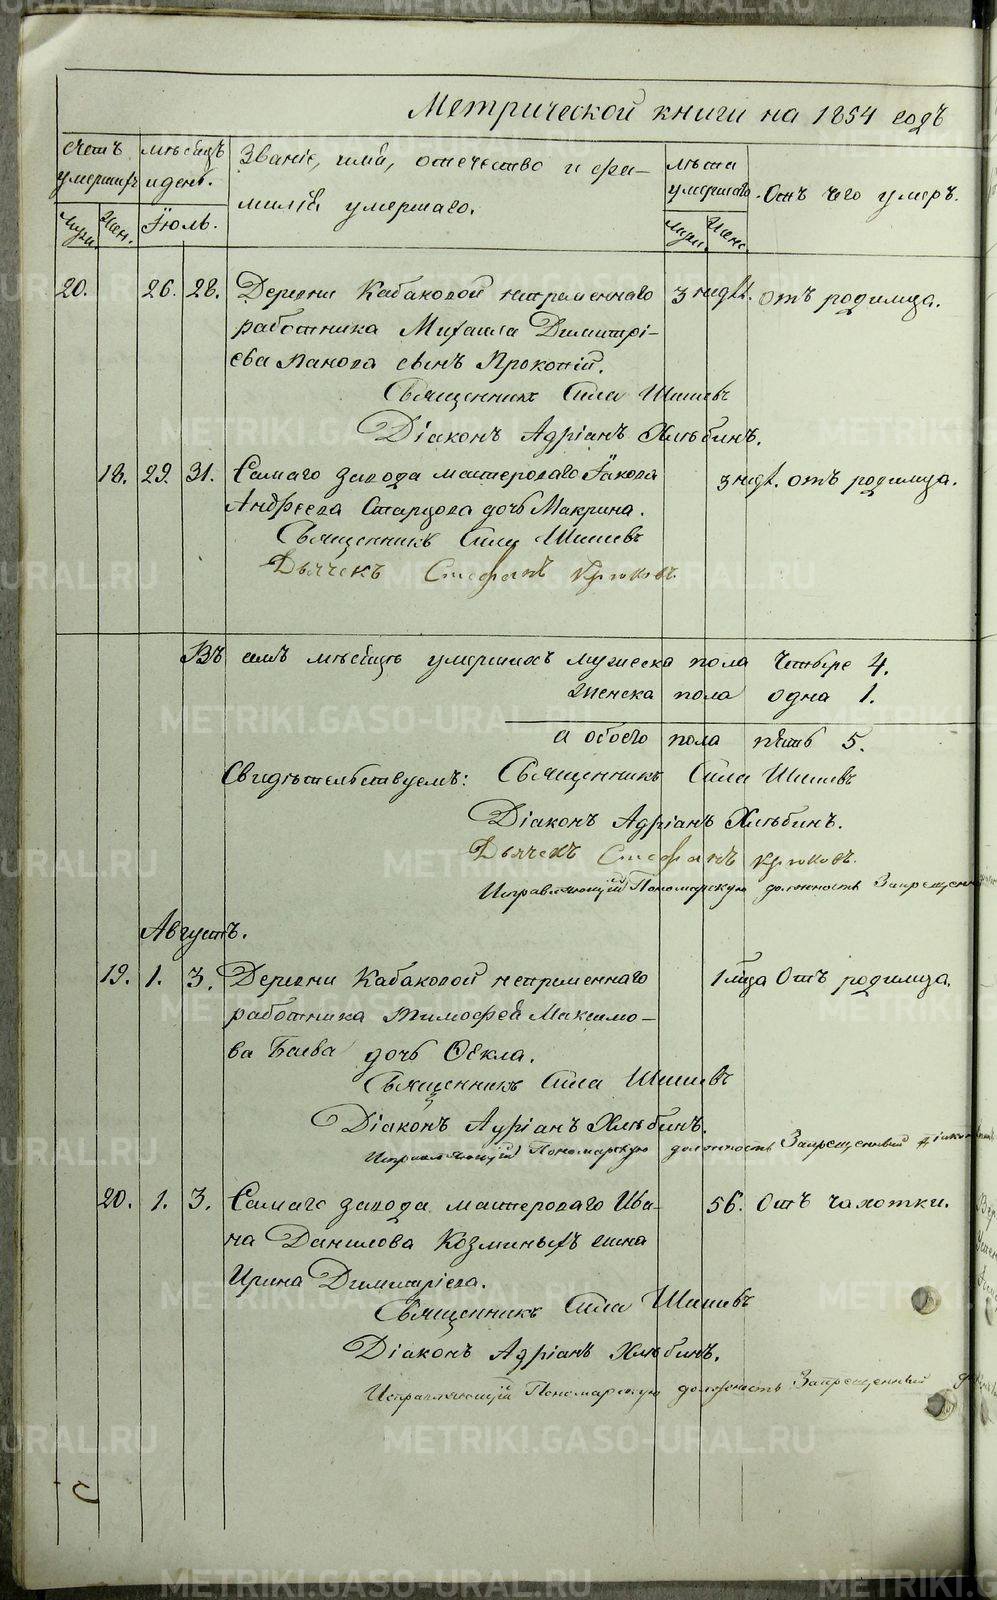 Метрической книги на 1854 годъ
Счетъ умершихъ
мѣсяцъ и день.
Званіе, имя, отечество и фамилія умершаго.
лѣта умершаго.
Отъ чего умеръ.
Муж. Жен. Іюль. Муж. Женс.
20. 26. 28. Деревни Кабаковой непременнаго 3 недѣл. отъ родимца.
работника Михаила Димитрі-
ева Панова сынъ Прокопій.
Священникъ Сила Шишевъ
Діаконъ Адріанъ Хлѣбинъ.
18. 29. 31. Самаго завода мастероваго Іакова 3 недѣл. отъ родимца.
Андреева Старцова дочь Макрина.
Священникъ Сила Шишевъ
Дьячекъ Стефанъ Крюковъ.
Въ семъ мѣсяцѣ умершихъ мужеска пола четыре 4.
женска пола одна 1.
а обоего пола пять 5.
Свидѣтельствуемъ: Священникъ Сила Шишевъ
Діаконъ Адріанъ Хлѣбинъ.
Дьячекъ Стефанъ Крюковъ.
Исправляющій Пономарскую должность Запрещенный
Августъ.
19. 1. 3. Деревни Кабаковой непременнаго 1 мѣца Отъ родимца.
работника Тимофея Максимо-
ва Баева дочь Ѳекла.
Священникъ Сила Шишевъ
Діаконъ Адріанъ Хлѣбинъ.
Исправляющій Пономарскую должность Запрещенный діаконъ
20. 1. 3. Самаго завода мастероваго Ива- 56. Отъ чахотки.
на Данилова Козминыхъ жена
Ирина Димитріева.
Священникъ Сила Шишевъ
Діаконъ Адріанъ Хлѣбинъ.
Исправляющій Пономарскую должность Запрещенный
METRIKI.GASO-URAL.RU